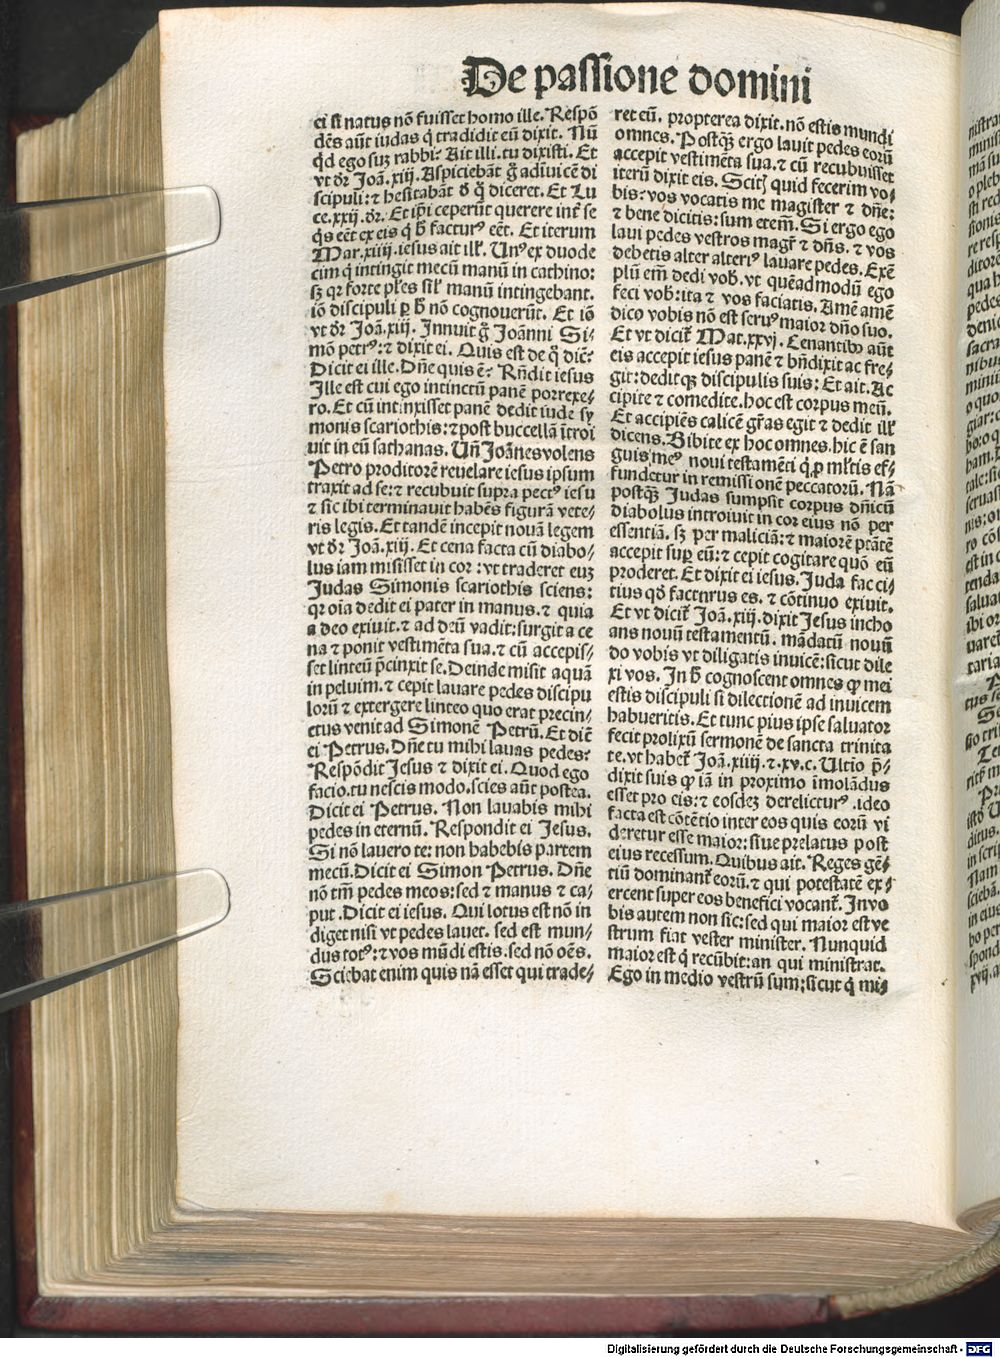 De passione domini
ei si natus nō fuisset homo ille. Respō
dēs aūt iudas q̇ tradidit eū dixit. Nū
qd ego suꝫ rabbi? Ait illi. tu dixisti. Et
vt dr Joā. xiij. Aspiciebāt g̊ adiuicē di
scipuli: ⁊ hesitabāt d̓ q̊ diceret. Et Lu
ce. xxij. dr. Et ip̄i ceperūt querere int̄ se
q̇s eēt ex eis q̇ h̓ factur⁹ eēt. Et iterum
Mar. xiiij. iesus ait ill̓. Un⁹ ex duode
cim q̇ intingit mecū manū in cathino:
sꝫ qꝛ forte pl̓es sil̓ manū intingebant.
iō discipuli ꝑ h̓ nō cognouerūt. Et iō
vt dr Joā. xiij. Innuit g̊ Joānni Si-
mō petr⁹: ⁊ dixit ei. Quis est de q̊ dic̄?
Dicit ei ille. Dn̄e quis ē? Rn̄dit iesus
Ille est cui ego intinctū panē porrexe-
ro. Et cū intinxisset panē dedit iude sy
monis scariothis: ⁊ post buccellā ītroi
uit in eū sathanas. Un̄ Joānes volens
Petro proditorē reuelare iesus ipsum
traxit ad se: ⁊ recubuit supra pect⁹ iesu
⁊ sic ibi terminauit habēs figurā vete-
ris legis. Et tandē incepit nouā legem
vt dr Joā. xiij. Et cena facta cū diabo-
lus iam misisset in cor: vt traderet euꝫ
Judas Simonis scariothis sciens:
qꝛ oīa dedit ei pater in manus. ⁊ quia
a deo exiuit. ⁊ ad deū vadit: surgit a ce
na ⁊ ponit vestimēta sua. ⁊ cū accepis-
set linteū p̄cinxit se. Deinde misit aquā
in peluim. ⁊ cepit lauare pedes discipu
lorū ⁊ extergere linteo quo erat precin-
ctus venit ad Simonē Petrū. Et dic̄
ei Petrus. Dn̄e tu mihi lauas pedes?
Respōdit Jesus ⁊ dixit ei. Quod ego
facio. tu nescis modo. scies aūt postea.
Dicit ei Petrus. Non lauabis mihi
pedes in eternū. Respondit ei Jesus.
Si nō lauero te: non habebis partem
mecū. Dicit ei Simon Petrus. Dn̄e
nō tm̄ pedes meos: sed ⁊ manus ⁊ ca-
put. Dicit ei iesus. Qui lotus est nō in
diget nisi vt pedes lauet. sed est mun-
dus tot⁹: ⁊ vos mūdi estis. sed nō oēs.
Sciebat enim quis nā esset qui trade-
ret eū. propterea dixit. nō estis mundi
omnes. Postqꝫ ergo lauit pedes eorū
accepit vestimēta sua. ⁊ cū recubuisset
iterū dixit eis. Scitꝭ quid fecerim vo-
bis: vos vocatis me magister ⁊ dn̄e:
⁊ bene dicitis: sum etem̄. Si ergo ego
laui pedes vestros magr̄ ⁊ dn̄s. ⁊ vos
debetis alter alteri⁹ lauare pedes. Exē
plū em̄ dedi vob̓. vt quēadmodū ego
feci vob̓: ita ⁊ vos faciatis. Amē amē
dico vobis nō est seru⁹ maior dn̄o suo.
Et vt dicit̄ Mat. xxvj. Cenantibꝰ aūt
eis accepit iesus panē ⁊ bn̄dixit ac fre-
git: deditqꝫ discipulis suis: Et ait. Ac
cipite ⁊ comedite. hoc est corpus meū.
Et accipiēs calicē gr̄as egit ⁊ dedit ill̓
dicens. Bibite ex hoc omnes. hic ē san
guis me⁹ noui testamēti q̇ ꝓ ml̓tis ef-
fundetur in remissionē peccatorū. Nā
postqꝫ Judas sumpsit corpus dn̄icū
diabolus introiuit in cor eius nō per
essentiā. sꝫ per maliciā: ⁊ maiorē ptātē
accepit suꝑ eū: ⁊ cepit cogitare quō eū
proderet. Et dixit ei iesus. Juda fac ci-
tius qd̓ facturus es. ⁊ cōtinuo exiuit.
Et vt dicit̄ Joā. xiij. dixit Jesus incho
ans nouū testamentū. mādatū nouū
do vobis vt diligatis inuicē: sicut dile
xi vos. In h̓ cognoscent omnes ꝙ mei
estis discipuli si dilectionē ad inuicem
habueritis. Et tunc pius ipse saluator
fecit prolixū sermonē de sancta trinita
te. vt habet̄ Joā. xiiij. ⁊. xv. c. Ultio p̄-
dixit suis ꝙ iā in proximo īmolādus
esset pro eis: ⁊ eosdeꝫ derelictur⁹. ideo
facta est cōtētio inter eos quis eorū vi
deretur esse maior: siue prelatus post
eius recessum. Quibus ait. Reges gē-
tiū dominant̄ eorū. ⁊ qui potestatē ex-
ercent super eos benefici vocant̄. In vo
bis autem non sic: sed qui maior est ve
strum fiat vester minister. Nunquid
maior est q̇ recūbit: an qui ministrat.
Ego in medio vestrū sum: sicut q̇ mi-
Digitalisierung gefördert durch die Deutsche Forschungsgemeinschaft - DFG